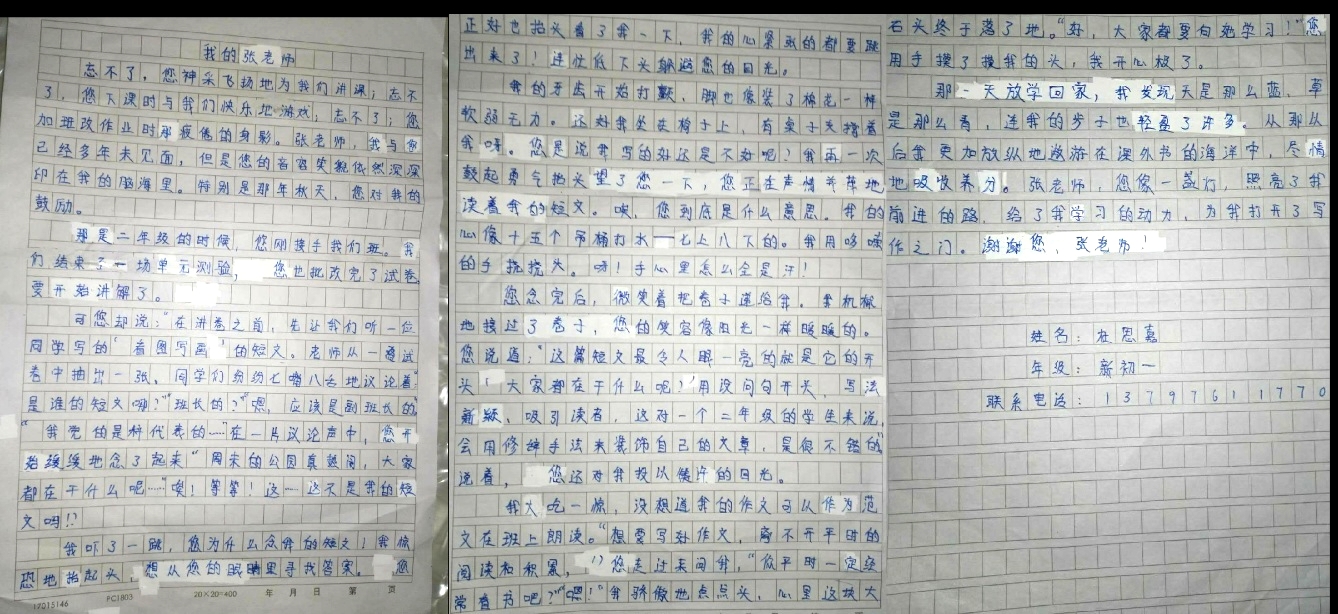 我的张老师
忘不了，您神采飞扬地为我们讲课；忘不
了，您下课时与我们快乐地游戏；忘不了；您
加班改作业时那疲倦的身影。张老师，我与您
已经多年未见面，但是您的音容笑貌依然深深
印在我的脑海里。特别是那年秋天，您对我的
鼓励。
那是二年级的时候，您刚接手我们班。我
们结束了一场单元测验，您也批改完了试卷，
要开始讲解了。
可您却说：“在讲卷之前，先让我们听一位
同学写的‘看图写画’的短文。老师从一叠试
卷中抽出一张，同学们纷纷七嘴八舌地议论着
是谁的短文哪？”班长的？”“嗯，应该是副班长的”
“我觉的是科代表的……”在一片议论声中，您开
始缓缓地念了起来“周末的公园真热闹，大家
都在干什么呢……”噢！等等！这……这不是我的短
文吗！？
我吓了一跳，您为什么念我的短文！我惊
恐地抬起头，想从您的眼睛里寻找答案。您
17015146 PC1803 20×20=400 年 月 日 第 页
正好也抬头看了我一下，我的心紧张的都要跳
出来了！连忙低下头躲避您的目光。
我的牙齿开始打颤、脚也像装了棉花一样
软弱无力。还好我坐在椅子上，有桌子支撑着
我呀。您是说我写的好还是不好呢？我再一次
鼓起勇气抬头望了您一下，您正在声情并茂地
读着我的短文。唉，您到底是什么意思。我的
心像十五个吊桶打水——七上八下的。我用哆嗦
的手挠挠头。呀！手心里怎么全是汗！
您念完后，微笑着把卷子递给我。我机械
地接过了卷子，您的笑容像阳光一样暖暖的。
您说道：“这篇短文最令人眼一亮的就是它的开
头‘大家都在干什么呢？’用设问句开头，写法
新颖、吸引读者，这对一个二年级的学生来说，
会用修辞手法来装饰自己的文章，是很不错的”
说着，您还对我投以赞许的目光。
我大吃一惊，没想道我的作文可以作为范
文在班上朗读。“想要写好作文，离不开平时的
阅读和积累，”您走过来问我，“你平时一定经
常看书吧？”“嗯！”我骄傲地点点头，心里这块大
石头终于落了地。“好，大家都要向她学习！”您
用手摸了摸我的头，我开心极了。
那一天放学回家，我发现天是那么蓝、草
是那么青，连我的步子也轻盈了许多。从那以
后我更加放纵地遨游在课外书的海洋中，尽情
地吸收养分。张老师，您像一盏灯，照亮了我
前进的路，给了我学习的动力，为我打开了写
作之门。谢谢您、张老师！
姓名：杜恩嘉
年级：新初一
联系电话：13797611770